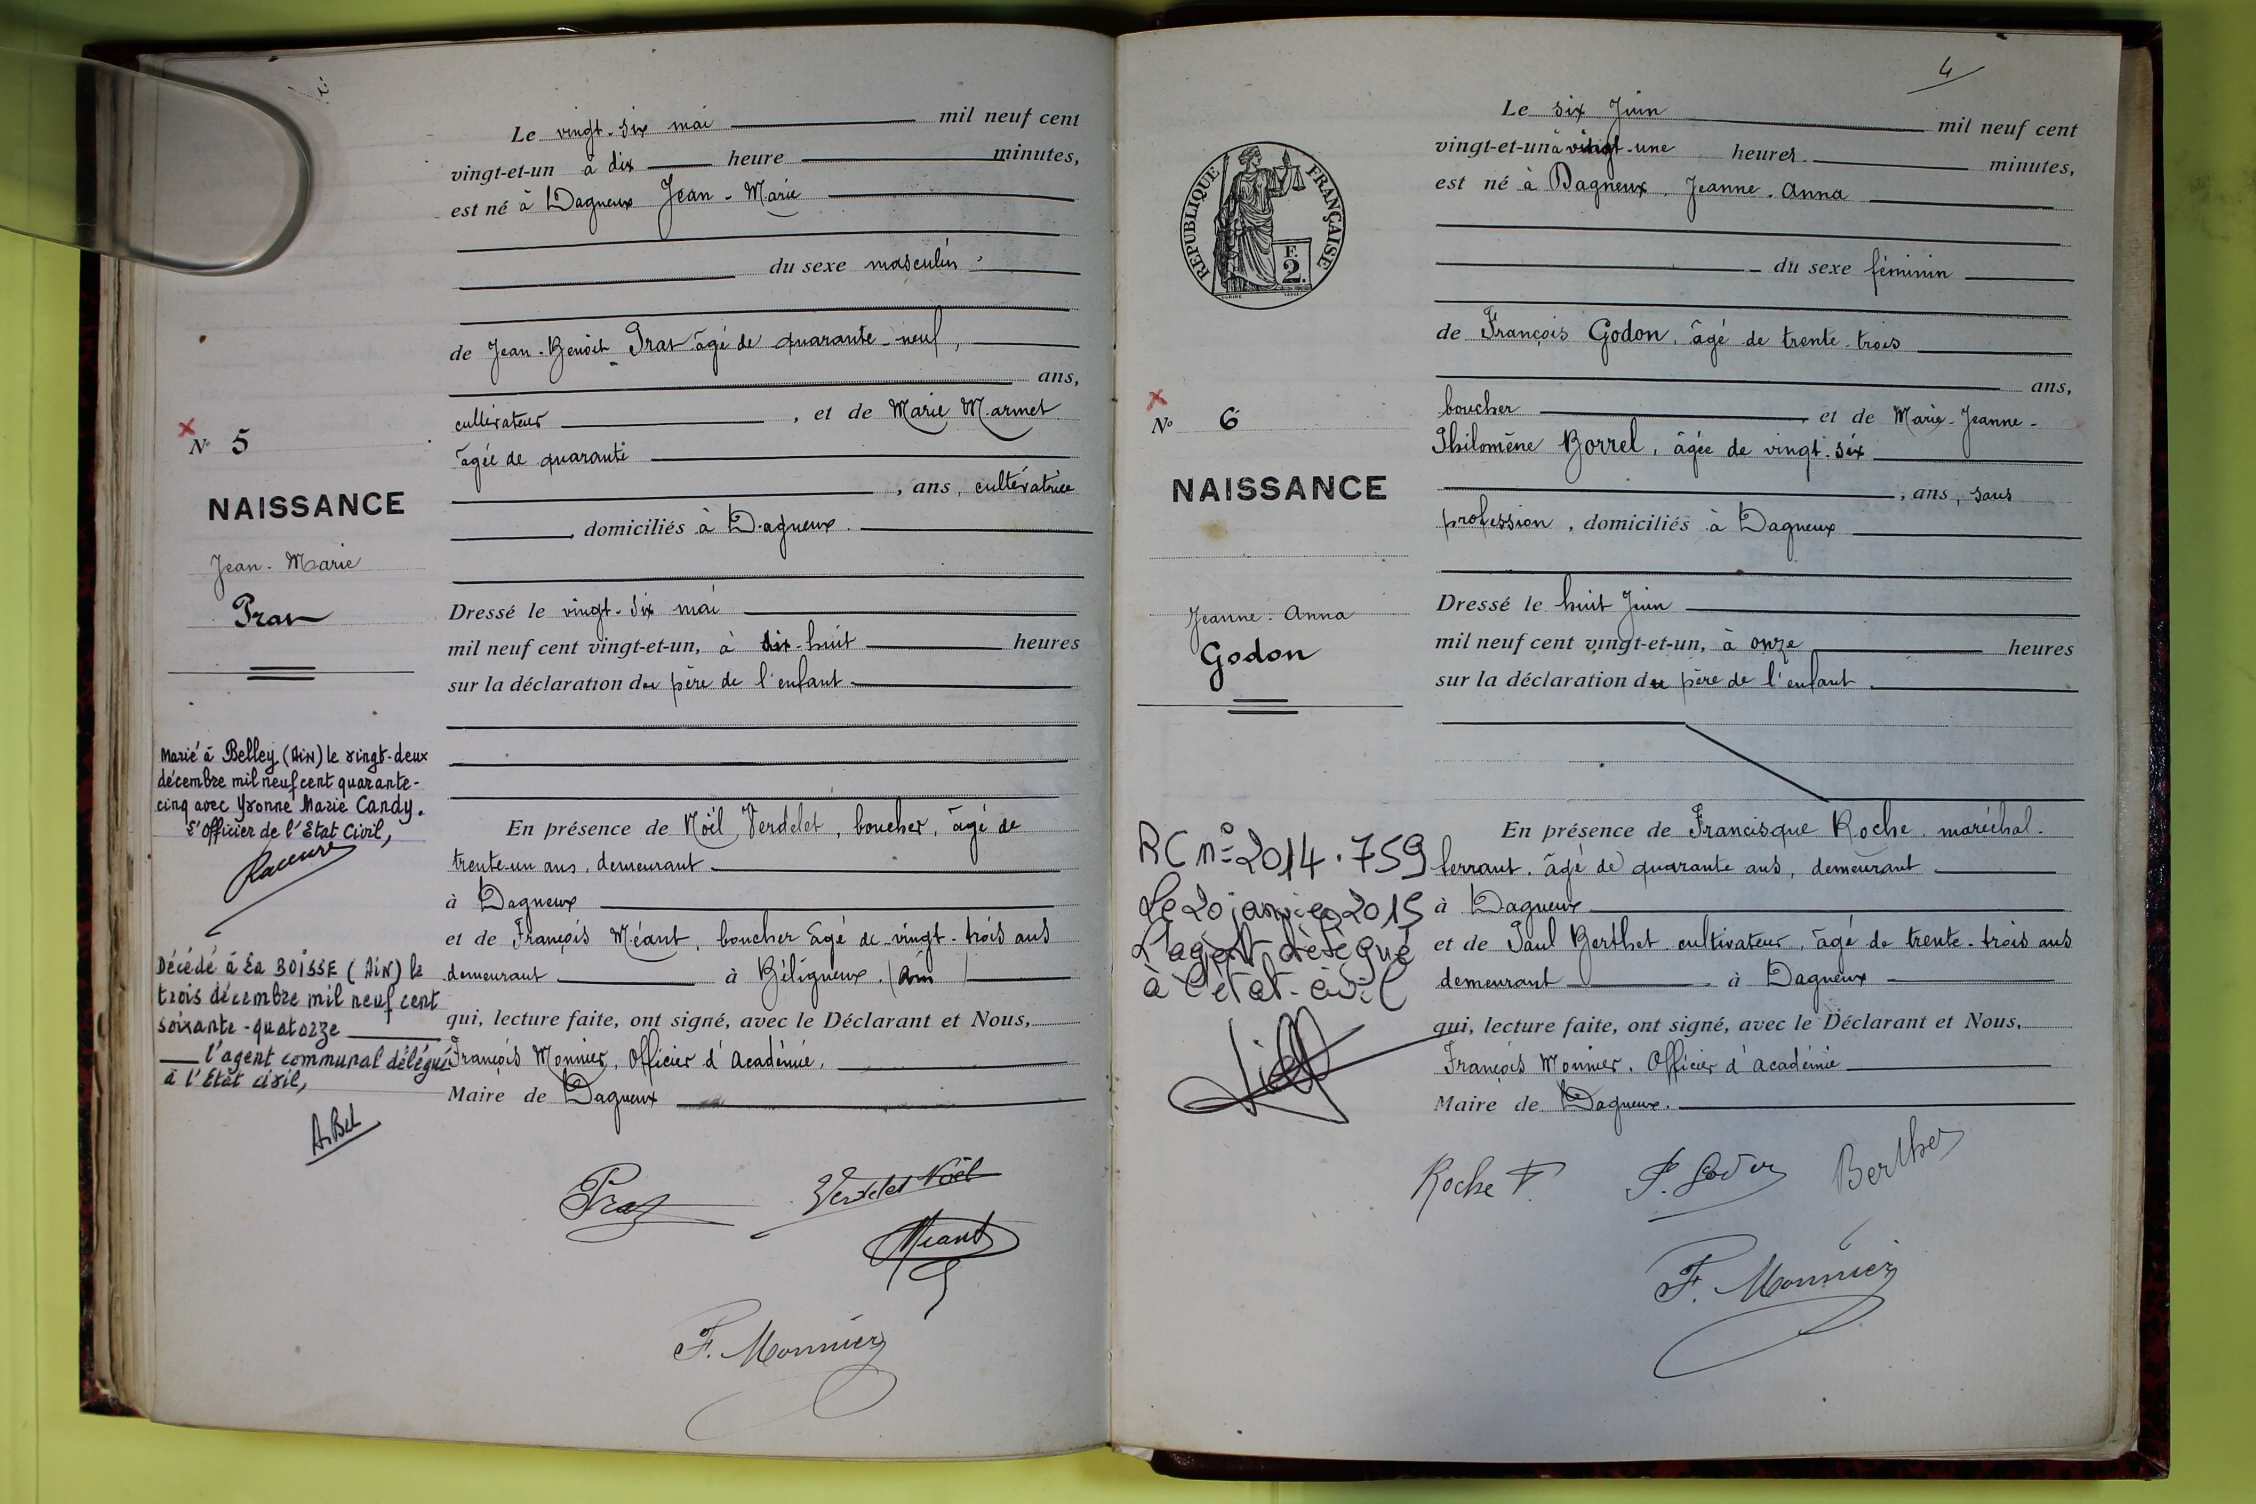 Le vingt-six mai mil neuf cent
vingt-et-un à dix heure minutes,
est né à Dagneux Jean-Marie
du sexe masculin
de Jean-Benoit Prat âgé de quarante-neuf,
ans,
cultivateur, et de Marie Marmet
âgée de quarante
, ans, cultivatrice
, domiciliés à Dagneux.
Dressé le vingt-six mai
mil neuf cent vingt-et-un, à dix-huit heures
sur la déclaration du père de l'enfant
En présence de Noël Verdelet, boucher, âgé de
trente-un ans, demeurant
à Dagneux
et de François Méant, boucher âgé de vingt-trois ans
demeurant à Béligneux (Ain)
qui, lecture faite, ont signé, avec le Déclarant et Nous,
François Monnier, Officier d'Académie,
Maire de Dagneux
Verdelet Noël
Méant
F. Monnier
N° 5
NAISSANCE
Jean-Marie
Prat
Marié à Belley (Ain) le vingt-deux
décembre mil neuf cent quarante-
cinq avec Yvonne Marie Candy.
L'Officier de l'Etat Civil,
Décédé à La BOISSE (Ain) le
trois décembre mil neuf cent
soixante-quatorze
l'agent communal délégué
à l'Etat Civil,
4
Le six Juin mil neuf cent
vingt-et-un à vingt-une heures minutes,
est né à Dagneux, Jeanne-Anna
du sexe féminin
de François Godon, âgé de trente-trois
ans,
boucher, et de Marie-Jeanne-
Philomène Borrel, âgée de vingt-six
, ans, sans
profession, domiciliés à Dagneux
Dressé le huit Juin
mil neuf cent vingt-et-un, à onze heures
sur la déclaration du père de l'enfant
En présence de Francisque Roche, maréchal-
ferrant, âgé de quarante ans, demeurant
à Dagneux
et de Paul Berthet cultivateur, âgé de trente-trois ans
demeurant à Dagneux
qui, lecture faite, ont signé, avec le Déclarant et Nous,
François Monnier, Officier d'Académie
Maire de Dagneux.
Roche F.
Berthet
F. Monnier
RÉPUBLIQUE FRANÇAISE
F.
2.
N° 6
NAISSANCE
Jeanne-Anna
Godon
RC n° 2014.759
Le 20 janvier 2015
L'agent délégué
à l'état-civil